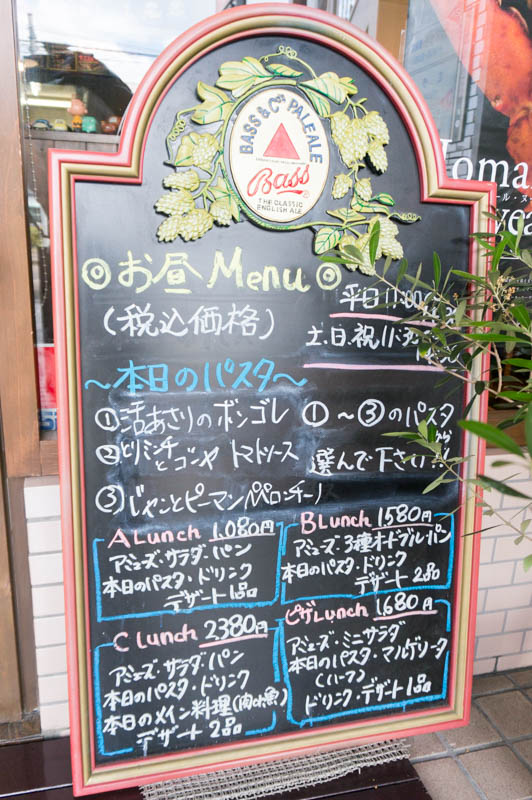 BASS & Co's PALE ALE
Bass
THE CLASSIC
ENGLISH ALE
◎お昼Menu◎
(税込価格)
平日11:00
土.日.祝 11:
〜本日のパスタ〜
①活あさりのボンゴレ
②とりミンチとゴーヤ トマトソース
③じゃことピーマンペペロンチーノ
①〜③のパスタから
選んで下さい!!
A Lunch 1,080円
アミューズ・サラダ・パン
本日のパスタ・ドリンク
デザート1品
B Lunch 1580円
アミューズ・3種オードブル・パン
本日のパスタ・ドリンク
デザート2品
C Lunch 2380円
アミューズ・サラダ・パン
本日のパスタ・ドリンク
本日のメイン料理(肉or魚)
デザート2品
ピザLunch 1,680円
アミューズ・ミニサラダ
本日のパスタ・マルゲリータ
(ハーフ)
ドリンク・デザート1品